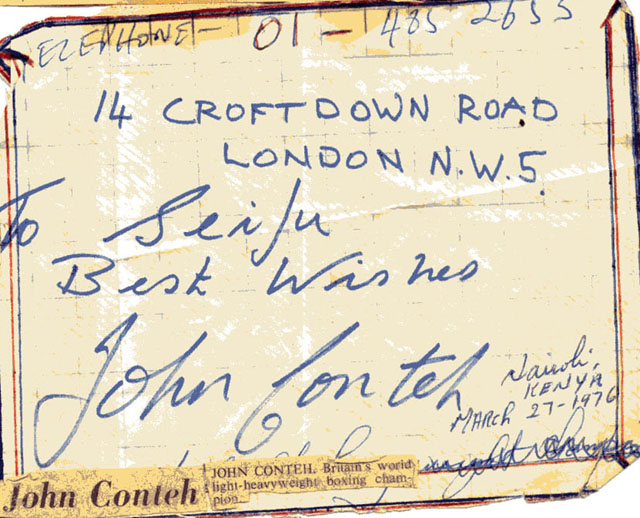 TELEPHONE – 01 – 485
14 CROFTDOWN ROAD
LONDON N.W.5.
To Seifu
Best Wishes
John Conteh
Nairobi,
KENYA
MARCH 27-1976
John Conteh
JOHN CONTEH. Britain's world
light-heavyweight boxing cham-
pion.